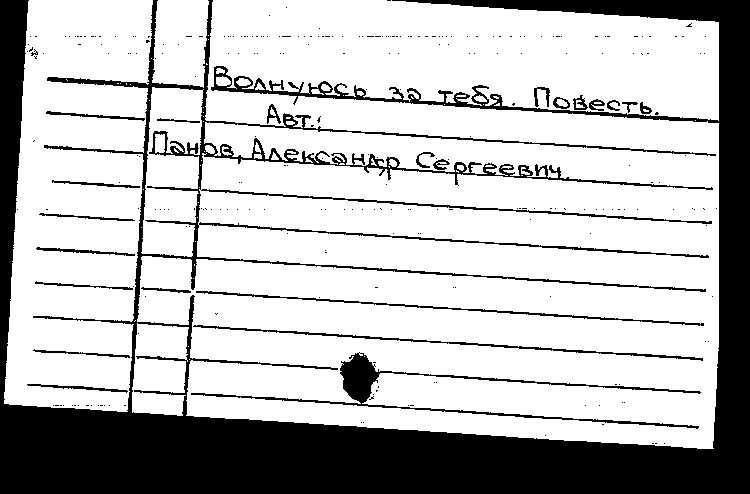 Волнуюсь за тебя. Повесть.
Авт.:
Панов, Александр Сергеевич.